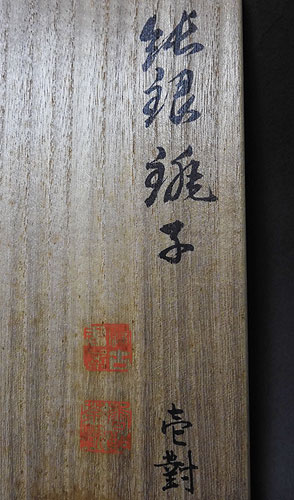 純銀銚子
壱對